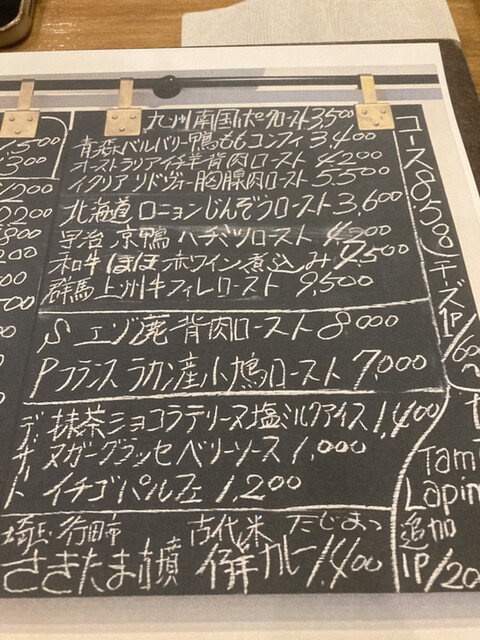 九州南国ポークロースト3,500
青森バルバリー鴨ももコンフィ3,400
オーストラリア仔羊背肉ロースト4,200
イタリアリドヴォー胸腺肉ロースト5,500
北海道ロニョンじんぞうロースト3,600
宇治京鴨ハチミツロースト
和牛ほほ赤ワイン煮込み4,500
群馬上州牛フィレロースト9,500
S エゾ鹿背肉ロースト8,000
P フランスラカン産小鳩ロースト7,000
デザート
抹茶ショコラテリーヌ塩ミルクアイス1,400
ヌガーグラッセベリーソース1,000
イチゴパルフェ1,200
埼玉行田市 古代米 たじまっ
さきたま古墳 カレー1,400
コース8,500
チーズ1P/600
Tam
Lapin
追加
1P/20